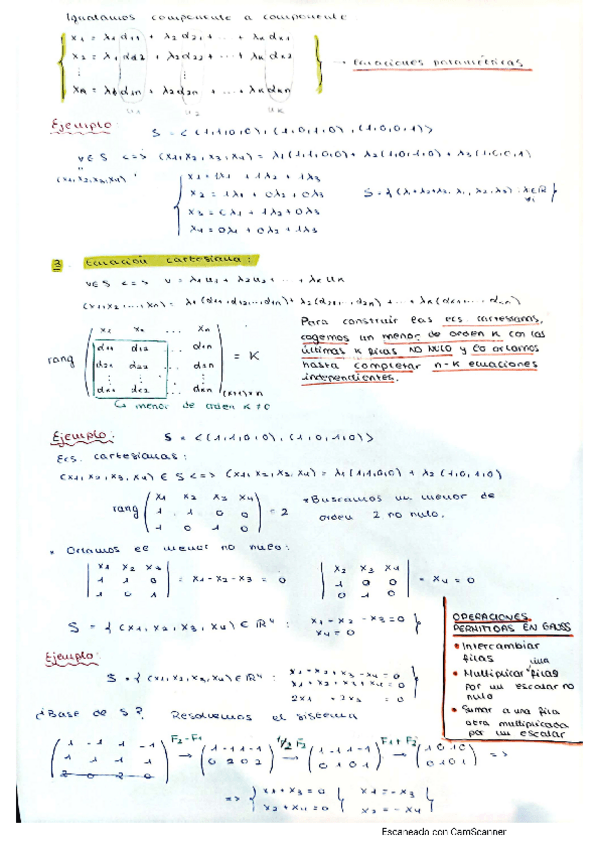 Igualamos componente a componente
x1 = λ1α11 + λ2α21 + ... + λkαk1
x2 = λ1α12 + λ2α22 + ... + λkαk2
xn = λ1α1n + λ2α2n + ... + λkαkn
→ Ecuaciones paramétricas
Ejemplo:
S = <(1,1,0,0), (1,0,1,0), (1,0,0,1)>
v∈S <=> (x1,x2,x3,x4) = λ1(1,1,0,0) + λ2(1,0,1,0) + λ3(1,0,0,1)
(x1,x2,x3,x4)
x1 = 1λ1 + 1λ2 + 1λ3
x2 = 1λ1 + 0λ2 + 0λ3
x3 = 0λ1 + 1λ2 + 0λ3
x4 = 0λ1 + 0λ2 + 1λ3
3 Ecuación cartesiana:
v∈S <=> v = λ1u1 + λ2u2 + ... + λkuk
(x1,x2,...,xn) = λ1(α11,α12,...,α1n) + λ2(α21,...,α2n) + ... + λk(αk1,...,αkn)
rang
x1 x2 ... xn
α11 α12 ... α1n
α21 α22 ... α2n
αk1 αk2 ... αkn (k+1)×n
= K
↳ menor de orden K ≠ 0
Para construir las ecs. cartesianas,
cogemos un menor de orden K con las
últimas K filas NO NULO y lo orlamos
hasta completar n-K ecuaciones
independientes.
Ejemplo:
S = <(1,1,0,0), (1,0,1,0)>
Ecs. cartesianas:
(x1,x2,x3,x4) ∈ S <=> (x1,x2,x3,x4) = λ1(1,1,0,0) + λ2(1,0,1,0)
rang
x1 x2 x3 x4
1 1 0 0
1 0 1 0
= 2
* Buscamos un menor de
orden 2 no nulo.
* Orlamos el menor no nulo:
x1 x2 x3
1 1 0
1 0 1
= x1 - x2 - x3 = 0
x2 x3 x4
1 0 0
0 1 0
= x4 = 0
S = { (x1,x2,x3,x4) ∈ R⁴ : x1 - x2 - x3 = 0
x4 = 0 }
OPERACIONES
PERMITIDAS EN GAUSS
• Intercambiar
filas
• Multiplicar una filas
por un escalar no
nulo
• Sumar a una fila
otra multiplicada
por un escalar
Ejemplo:
S = { (x1,x2,x3,x4) ∈ R⁴ : x1 - x2 + x3 - x4 = 0
x1 + x2 + x3 + x4 = 0
2x1 + 2x3 = 0 }
¿Base de S? Resolvemos el sistema
1 -1 1 -1
1 1 1 1
2 0 2 0
F2-F1 →
1 -1 1 -1
0 2 0 2
1/2 F2 →
1 -1 1 -1
0 1 0 1
F1+F2 →
1 0 1 0
0 1 0 1
=>
=> { x1 + x3 = 0 { x1 = -x3
x2 + x4 = 0 x2 = -x4
Escaneado con CamScanner